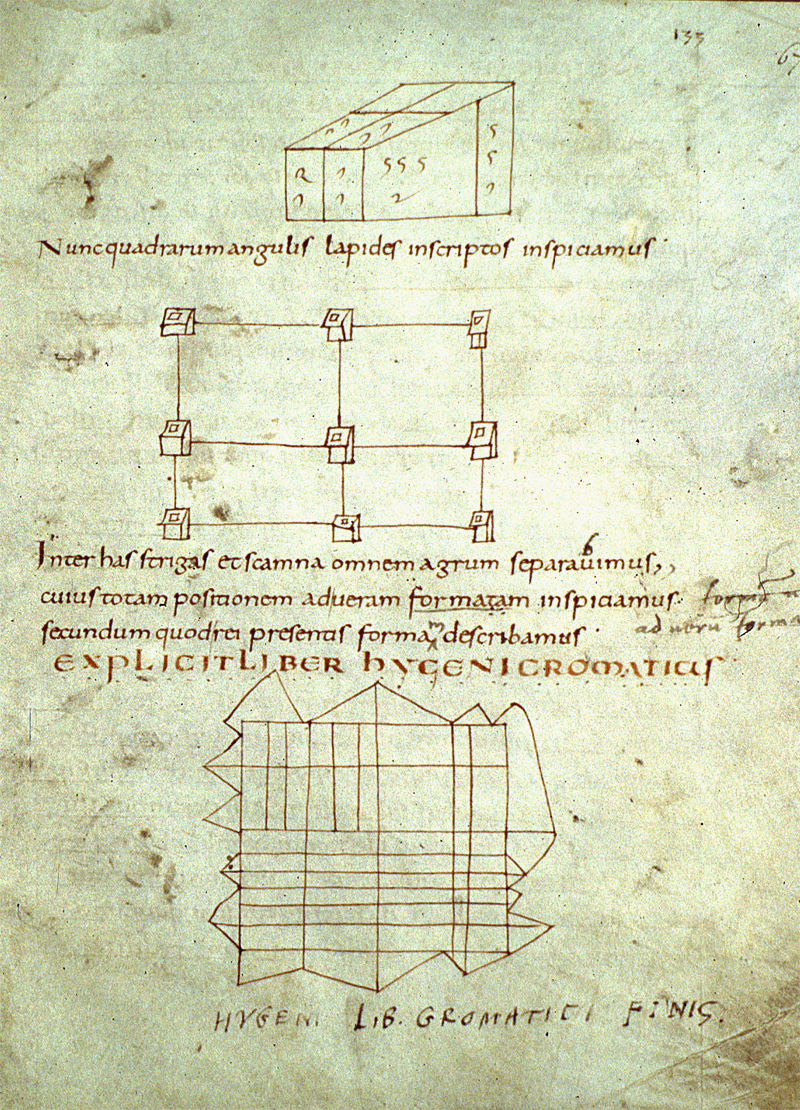 133
67
2 2 2 2 2
R 2 5 5 5 5
2 2 2 5
2
Nunc quadrarum angulis lapides inscriptos inspiciamus·
Inter has strigas et scamna omnem agrum separauimus,,
b
cuius totam positionem ad ueram formatam inspiciamus·
secundum quod rei presentis forma describamus·
m
ad uerū forma
EXPLICIT LIBER hYGENI GROMATICUS
HYGENI LIB. GROMATICI FINIS.